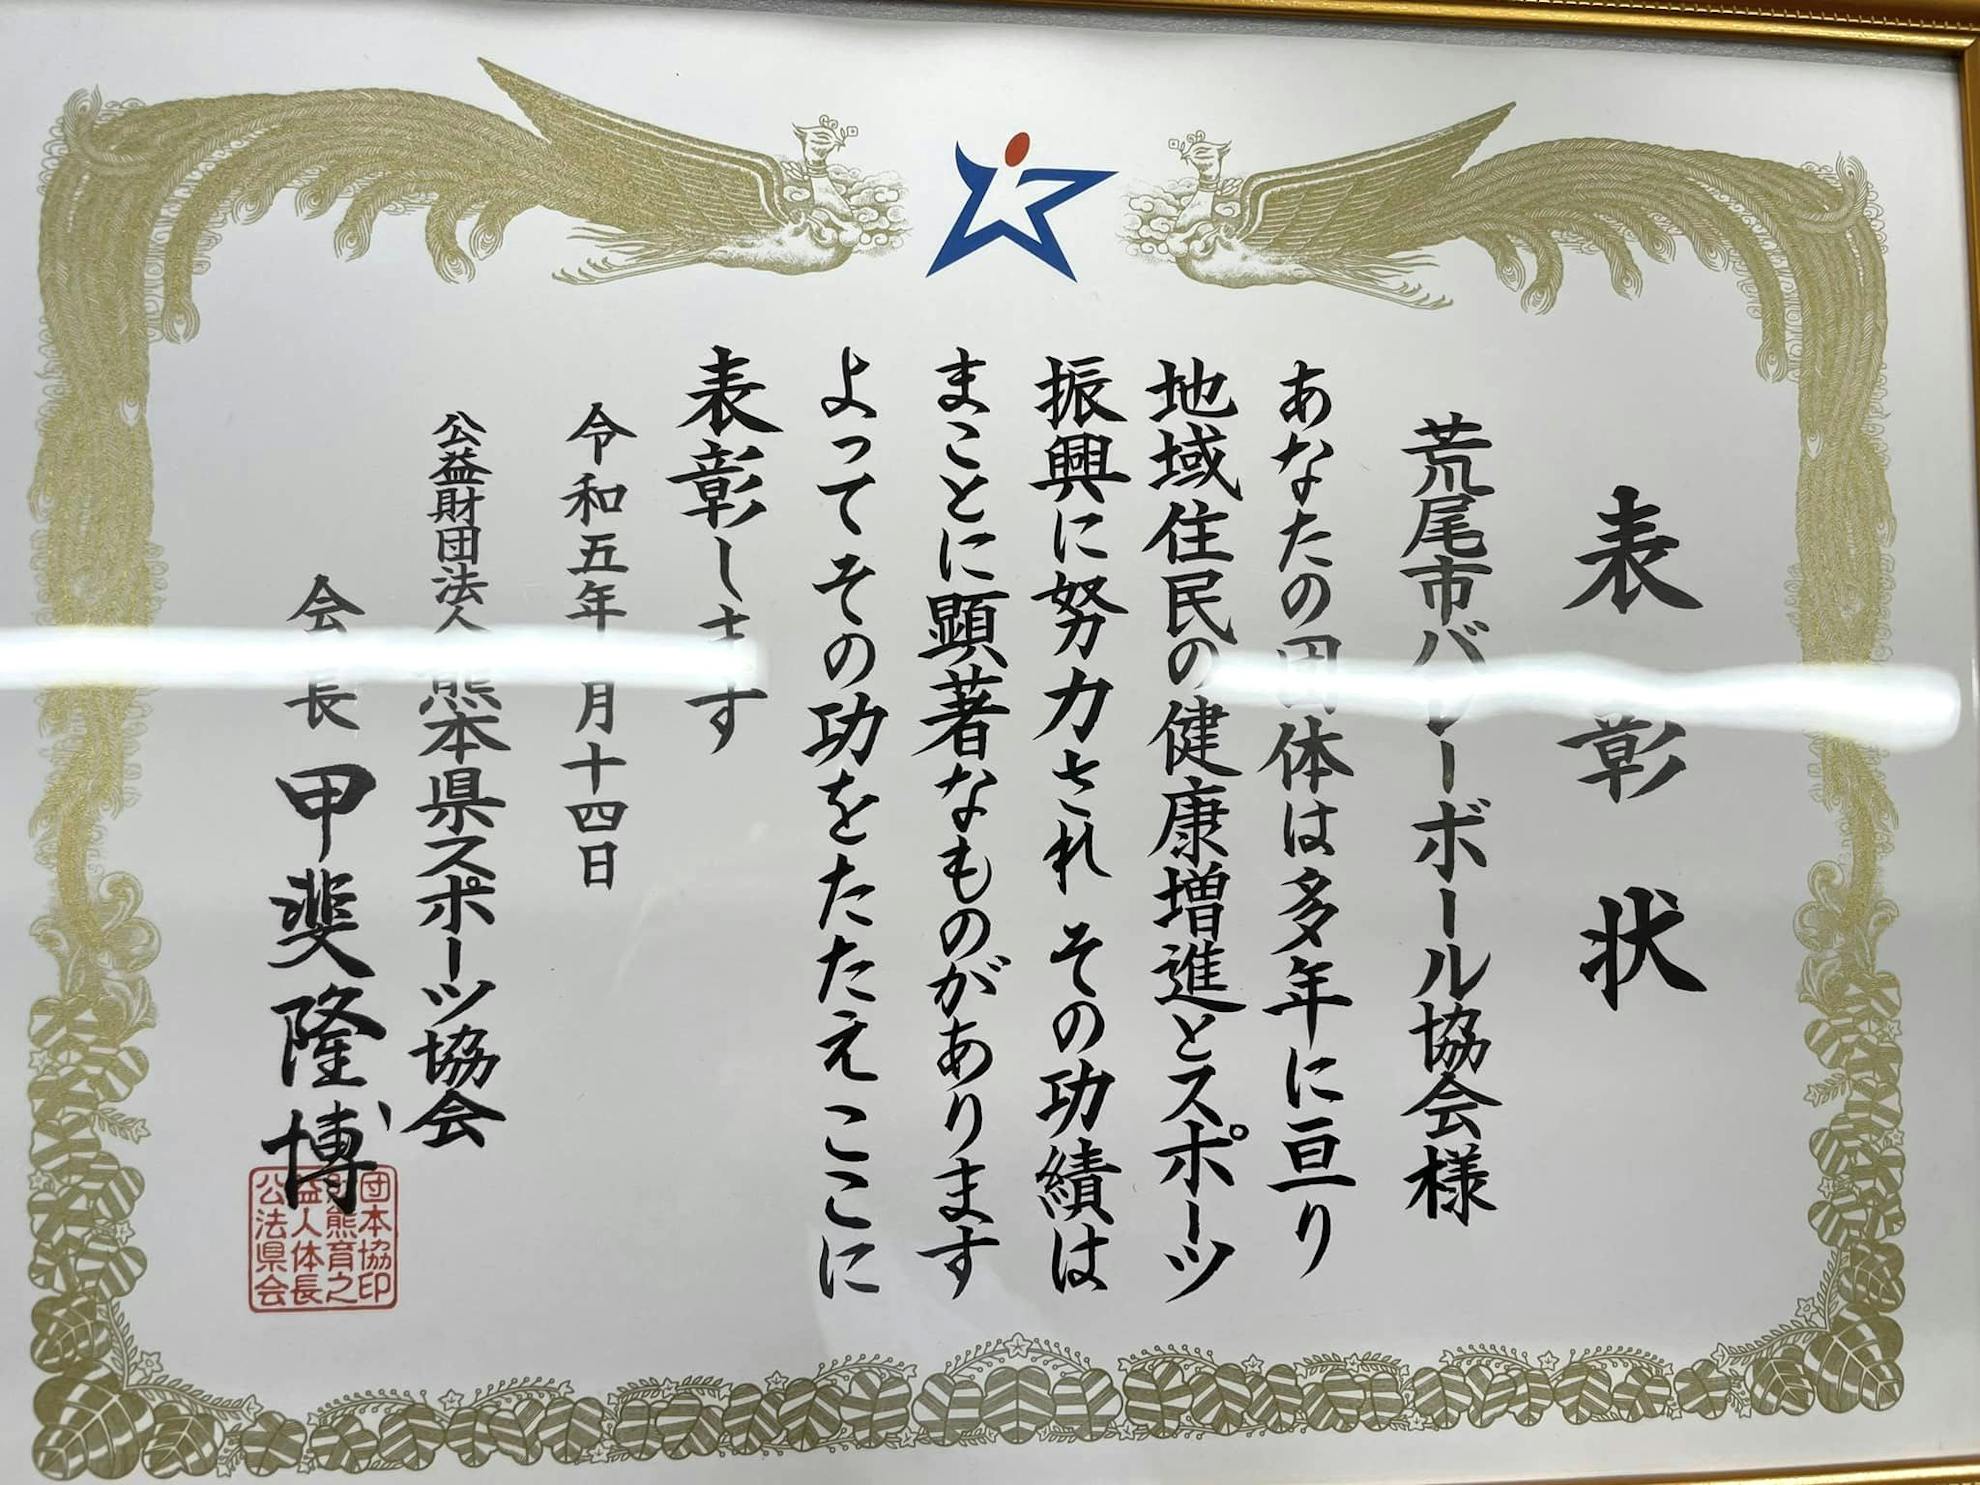 表彰状
荒尾市バレーボール協会様
あなたの団体は多年に亘り
地域住民の健康増進とスポーツ
振興に努力され その功績は
まことに顕著なものがあります
よってその功をたたえここに
表彰します
令和五年 月十四日
公益財団法人熊本県スポーツ協会
会長 甲斐隆博
公益財団
法人熊本
県体育協
会長之印